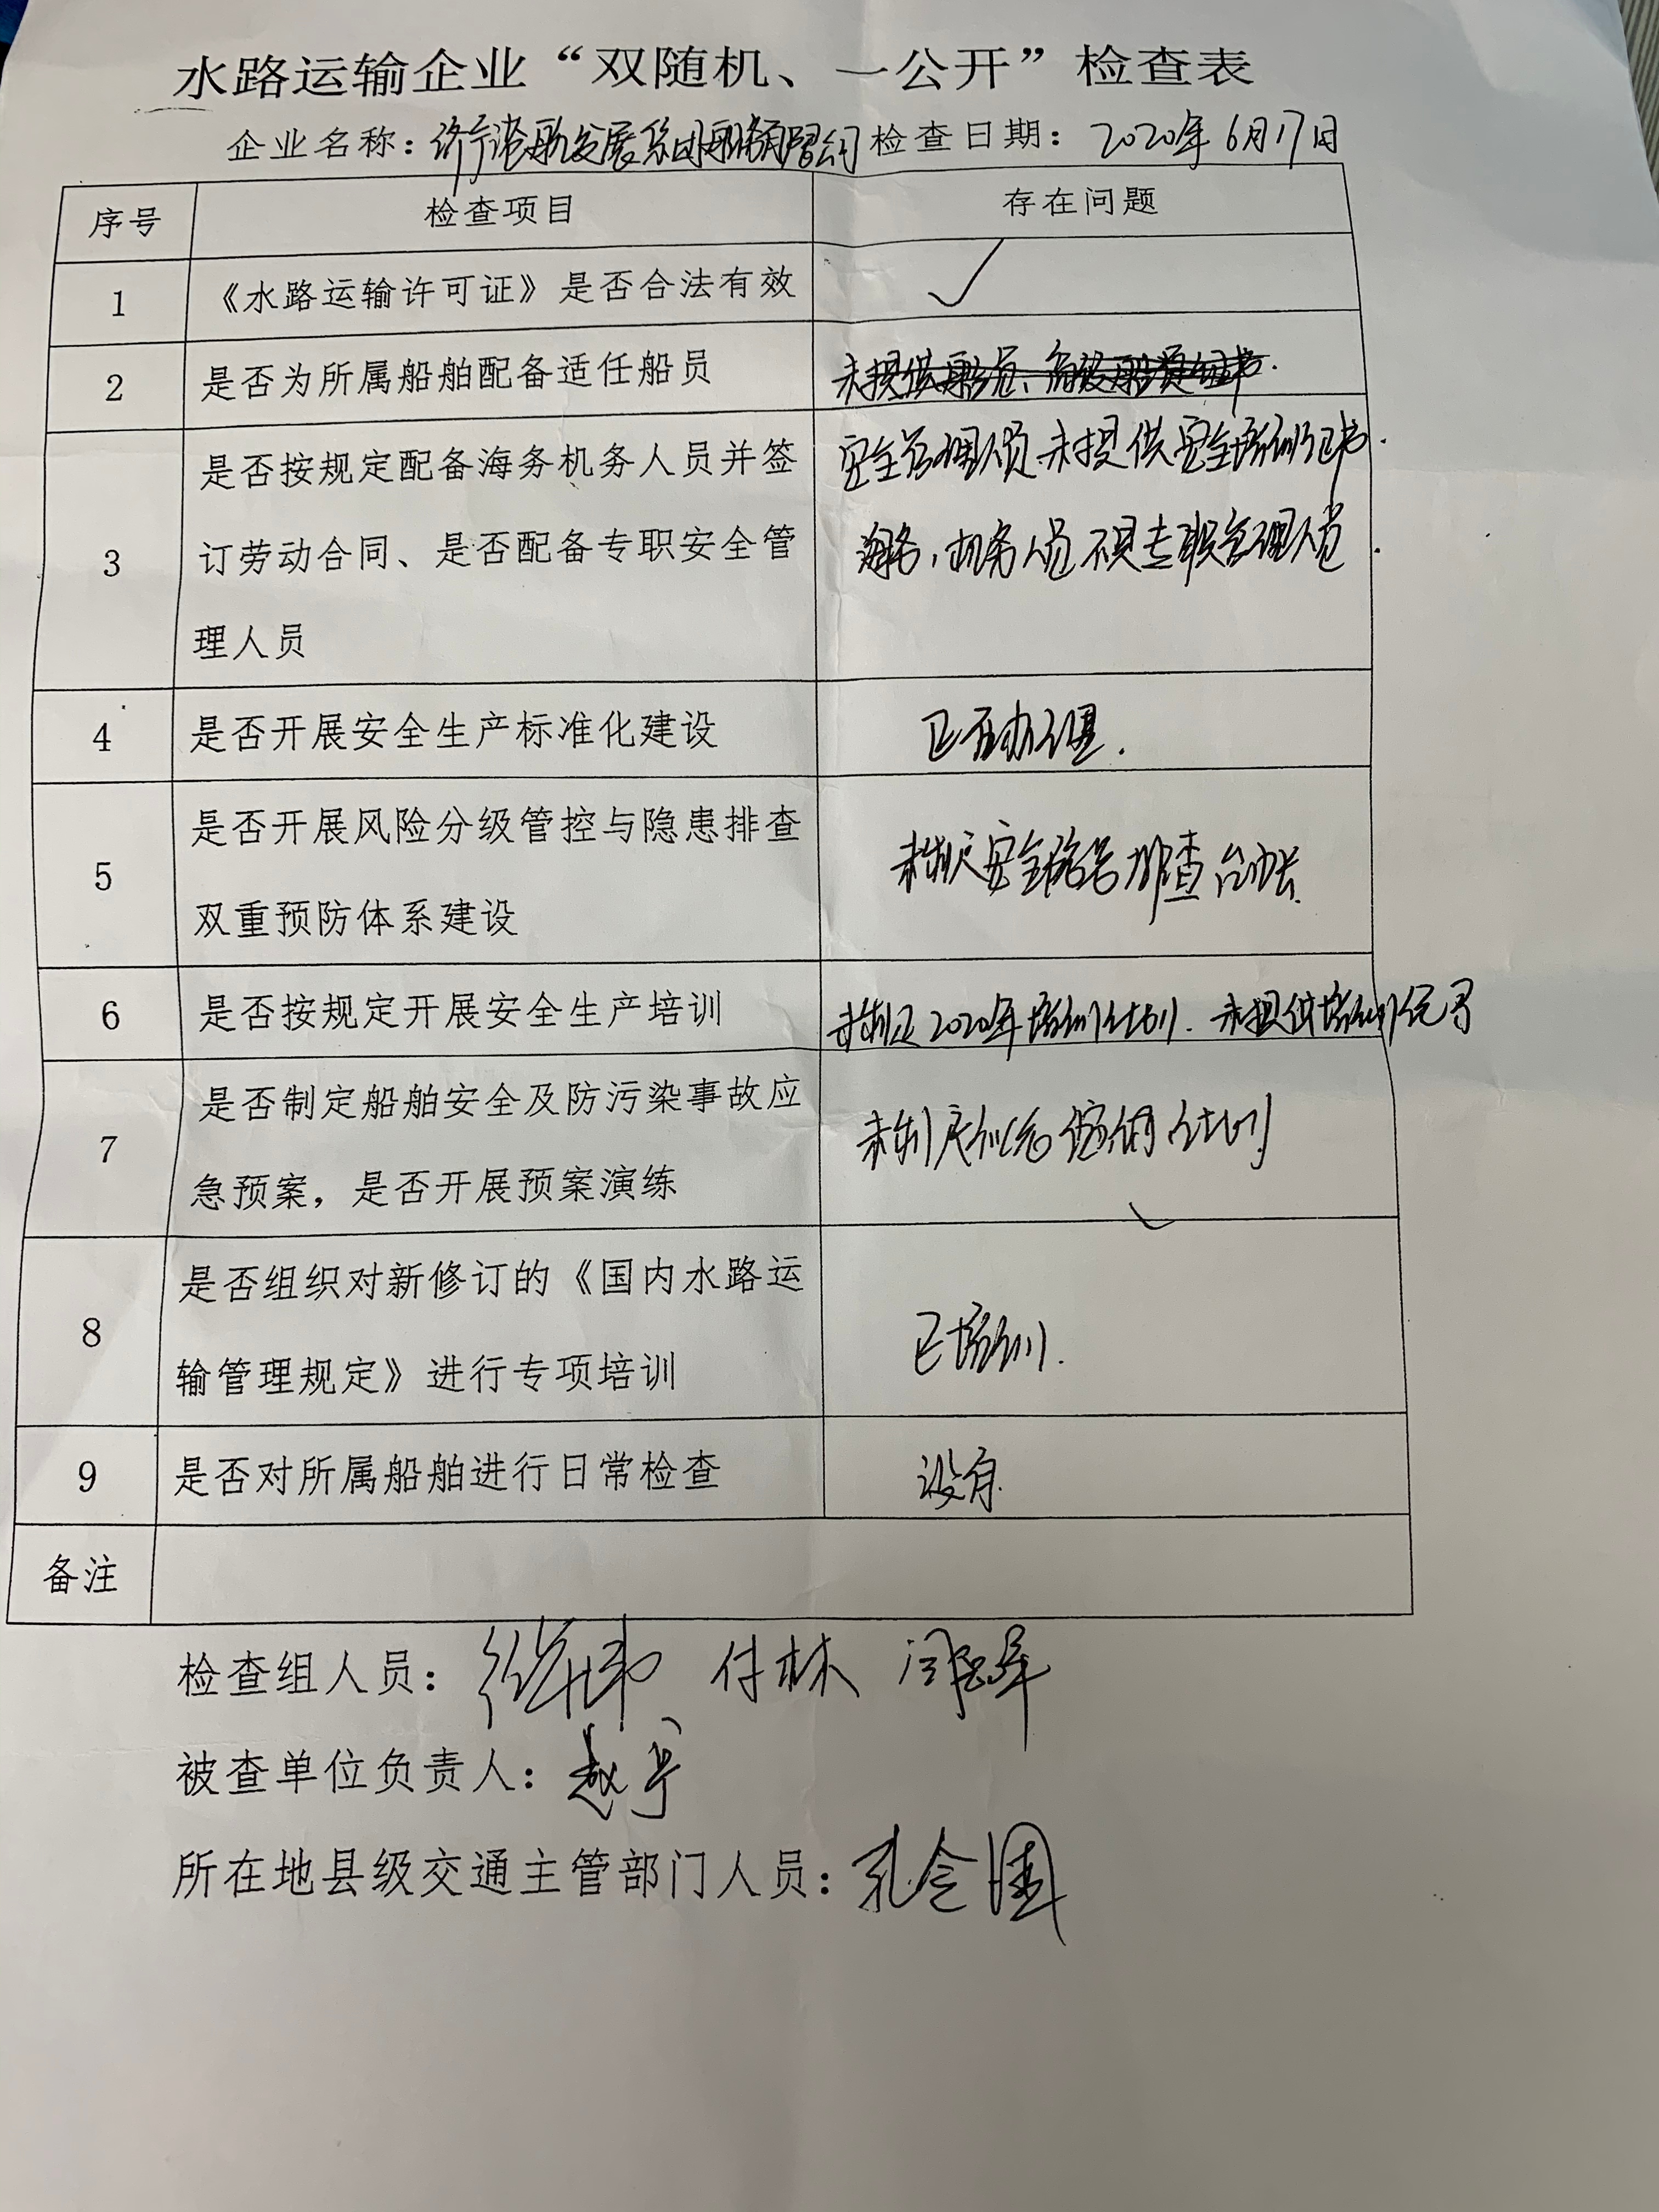 水路运输企业“双随机、一公开”检查表
企业名称：济宁港航发展集团船务有限公司 检查日期：2020年6月17日
序号 检查项目 存在问题
1 《水路运输许可证》是否合法有效 ✓
2 是否为所属船舶配备适任船员 未提供船员、
3 是否按规定配备海务机务人员并签 安全管理人员未提供安全培训证书.
订劳动合同、是否配备专职安全管 海务,机务人员不是专职管理人员.
理人员
4 是否开展安全生产标准化建设 已在办理.
5 是否开展风险分级管控与隐患排查 未制定安全隐患排查台账.
双重预防体系建设
6 是否按规定开展安全生产培训 未制定2020年培训计划. 未提供培训记录
7 是否制定船舶安全及防污染事故应 未制定应急演练计划
急预案，是否开展预案演练
8 是否组织对新修订的《国内水路运 已培训.
输管理规定》进行专项培训
9 是否对所属船舶进行日常检查 没有.
备注
检查组人员： 付林
被查单位负责人：赵宁
所在地县级交通主管部门人员：孔令国